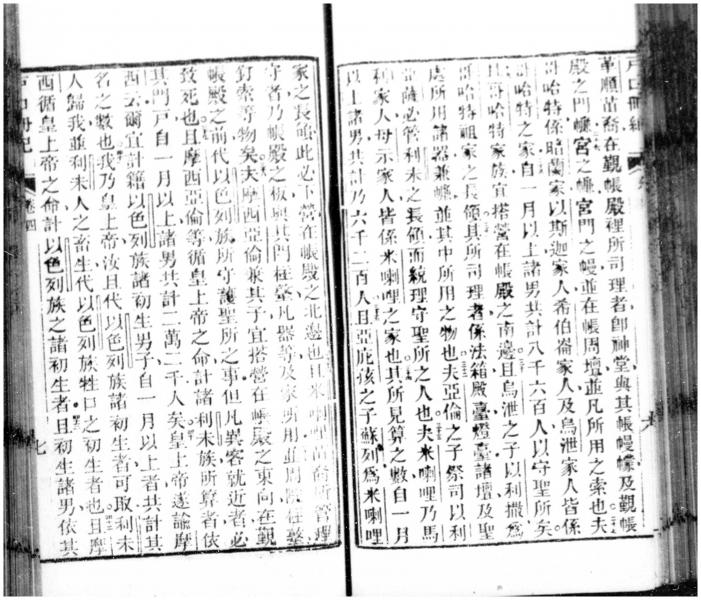 戶口冊紀
革順苗裔在覲帳殿裡所司理者卽神堂與其帳幔幪及覲帳
殿之門簾宮之㡘宮門之幔並在帳周壇並凡所用之索也夫
哥哈特係暗蘭家以斯迦家人希伯崙家人及烏泄家人皆係
哥哈特之家自一月以上諸男共計八千六百人以守聖所矣
且哥哈特家族宜搭營在帳殿之南邊且烏泄之子以利撒爲
哥哈特祖家之長領其所司理者係法箱殿臺燈臺諸壇及聖
處所用諸器兼㡘並其中所用之物也夫亞倫之子祭司以利
亞薩必管利未之長領而統理守聖所之人也夫米喇哩乃馬
利家人母示家人皆係米喇哩之家也其所見算之數自一月
以上諸男共計乃六千二百人且亞庇孩之子蘇列爲米喇哩
家之長領此必下營在帳殿之北邊也且米喇哩苗裔所管理
守者乃帳殿之板與其門柱臺凡器等及家所用並周院柱臺
釘索等物矣夫摩西亞倫兼其子宜搭營在帳殿之東向在覲
帳殿之前代以色列族所守護聖所之事但凡異客就近者必
致死也且摩西亞倫等循皇上帝之命計諸利未族所算者依
其門戶自一月以上諸男共計二萬二千人矣皇上帝遂諭摩
西云爾宜計籍以色列族諸初生男子自一月以上者共計其
名之數也我乃皇上帝汝且代以色列族諸初生者可取利未
人歸我並利未人之畜生代以色列族牲口之初生者也且摩
西循皇上帝之命計以色列族之諸初生者且初生諸男依其
戶口冊紀 卷四 七